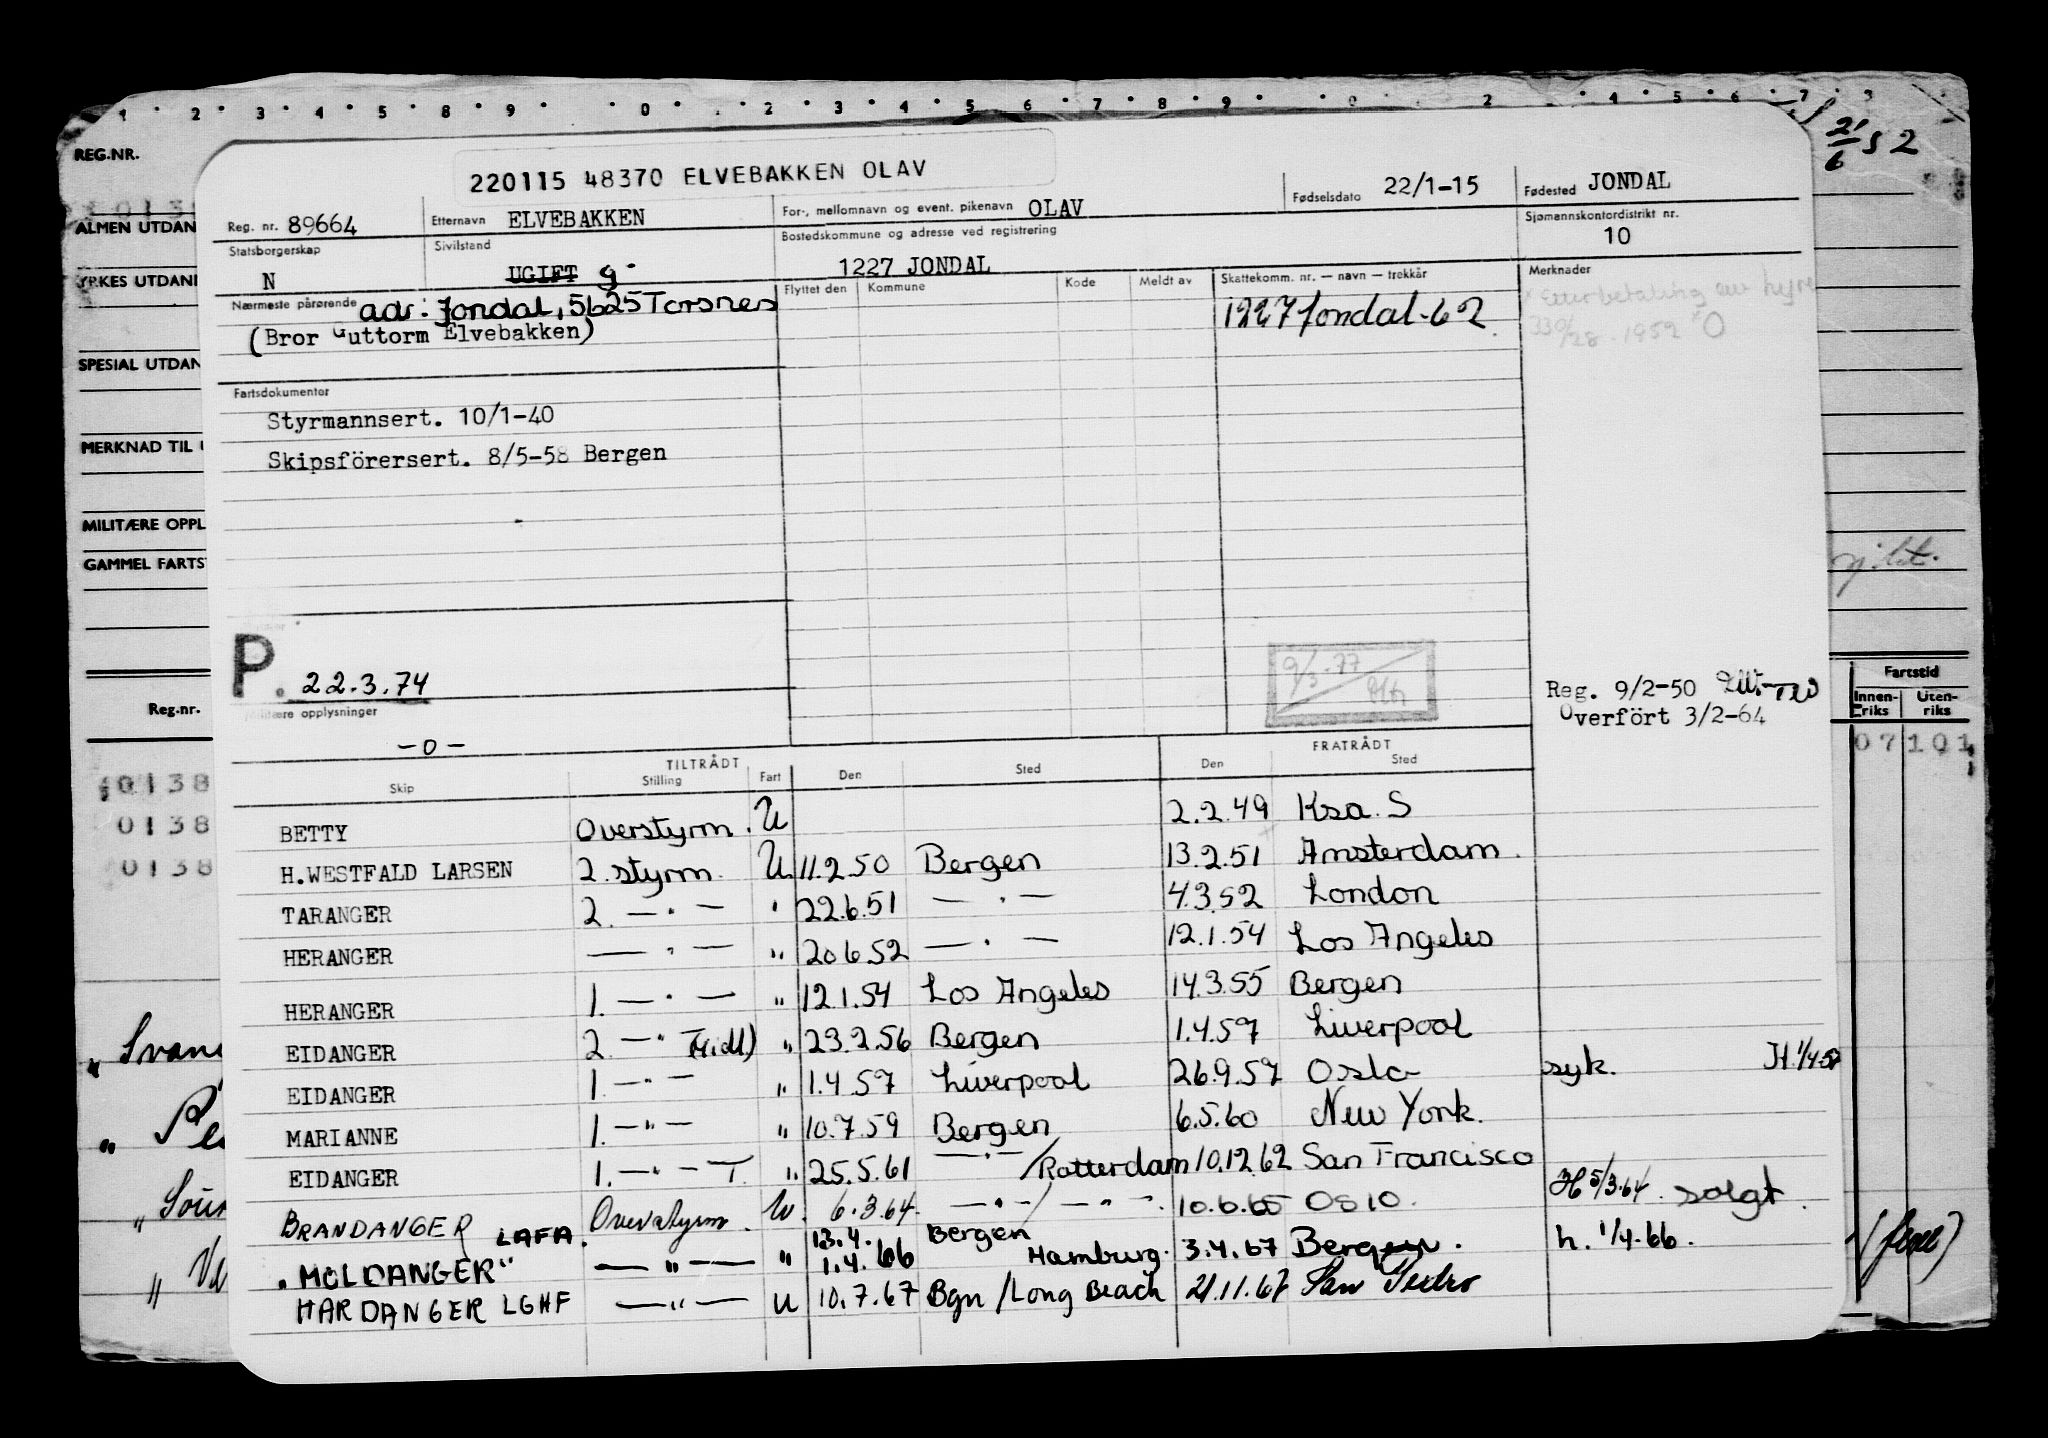 1 2 3 4 5 8 9 0 2 3 4 5 6 7 8 9 0 2 4 5 6 7 3
21/6 52
REG.NR.
220115 48370 ELVEBAKKEN OLAV
Reg. nr. 89664 Etternavn ELVEBAKKEN For-, mellomnavn og event. pikenavn OLAV Fødselsdato 22/1-15 Fødested JONDAL
ALMEN UTDAN
Statsborgerskap N Sivilstand UGIFT g. Bostedskommune og adresse ved registrering 1227 JONDAL Sjømannskontordistrikt nr. 10
YRKES UTDANI
Nærmeste pårørende adr: Jondal, 5625 Torsnes Flyttet den Kommune Kode Meldt av Skattekomm. nr. — navn — trekkår Merknader
(Bror Guttorm Elvebakken) 1227 Jondal-62
1952
SPESIAL UTDAN
Fartsdokumenter
Styrmannsert. 10/1-40
MERKNAD TIL
Skipsförersert. 8/5-58 Bergen
MILITÆRE OPPL
GAMMEL FARTS
P. 22.3.74
9/3-77
Reg. 9/2-50
Militære opplysninger
Overfört 3/2-64
-0-
Reg.nr.
Fartstid
Innenriks Utenriks
07 101
TILTRÅDT FRATRÅDT
Skip Stilling Fart Den Sted Den Sted
0138
0138
0138
BETTY Overstyrm. U 2.2.49 Ksa. S
H.WESTFALD LARSEN 2. styrm. U 11.2.50 Bergen 13.2.51 Amsterdam.
TARANGER 2. — " — " 22.6.51 — " — 4.3.52 London
HERANGER — " — " 20.6.52 — " — 12.1.54 Los Angeles
HERANGER 1. — " — " 12.1.54 Los Angeles 14.3.55 Bergen
EIDANGER 2. — " (Midl) " 23.2.56 Bergen 1.4.57 Liverpool
EIDANGER 1. — " — " 1.4.57 Liverpool 26.9.57 Oslo syk. H. 1/4-57
MARIANNE 1. — " — " 10.7.59 Bergen 6.5.60 New York.
EIDANGER 1. — " — T. " 25.5.61 — " — /Rotterdam 10.12.62 San Francisco
BRANDANGER LAFA. Overstyrm. U. 6.3.64. — " — / — " — 10.6.65 Oslo. H 5/3.64. solgt.
"MOLDANGER" — " — " 13.4. 1.4.66 Bergen/ Hamburg. 3.4.67 Bergen. h. 1/4-66.
HARDANGER LGHF — " — U 10.7.67 Bgn/Long Beach 21.11.67 San Pedro